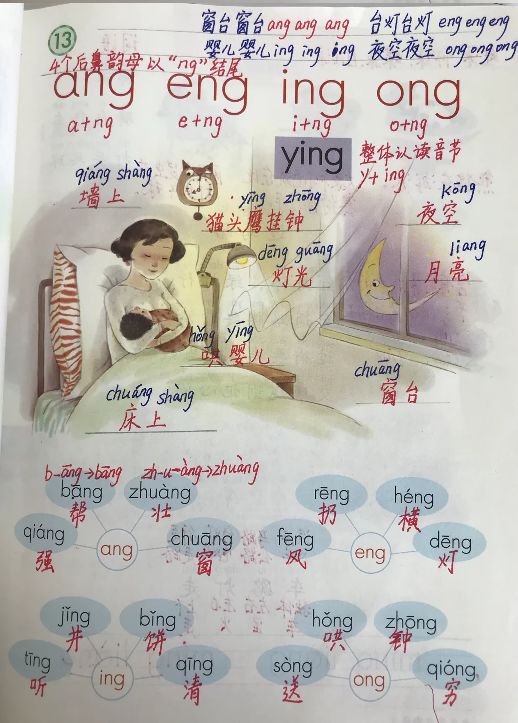 窗台窗台ang ang ang 台灯台灯 eng eng eng
13
婴儿婴儿ing ing ing 夜空夜空 ong ong ong
4个后鼻韵母以“ng”结尾
ang eng ing ong
a+ng e+ng i+ng o+ng
ying 整体认读音节
y+ing
qiáng shàng
墙上
yīng zhōng
猫头鹰挂钟
kōng
夜空
dēng guāng
灯光
liang
月亮
hǒng yīng
哄婴儿
chuāng
窗台
chuáng shàng
床上
b-āng→bāng zh-u-àng→zhuàng
bāng zhuàng rēng héng
帮 壮 扔 横
qiáng ang chuāng fēng eng dēng
强 窗 风 灯
jǐng bǐng hǒng zhōng
井 饼 哄 钟
tīng ing qīng sòng ong qióng
听 清 送 穷